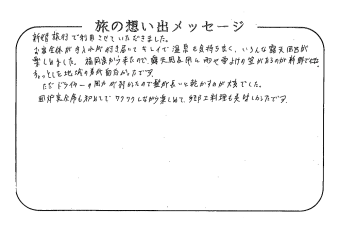 旅の想い出メッセージ
新婚旅行で利用させていただきました。
お宿全体が手入れが行き届いてキレイで温泉も気持ち良く、いろんな露天風呂が
楽しめました。福岡県から来たので、露天風呂用に雨や雪よけの笠があるのが新鮮で
ちょっとした地域の差が面白かったです。
ただドライヤーの風力が弱かったので髪が長いと乾かすのが大変でした。
囲炉裏会席も初めてでワクワクしながら楽しめて、郷土料理も美味しかったです。